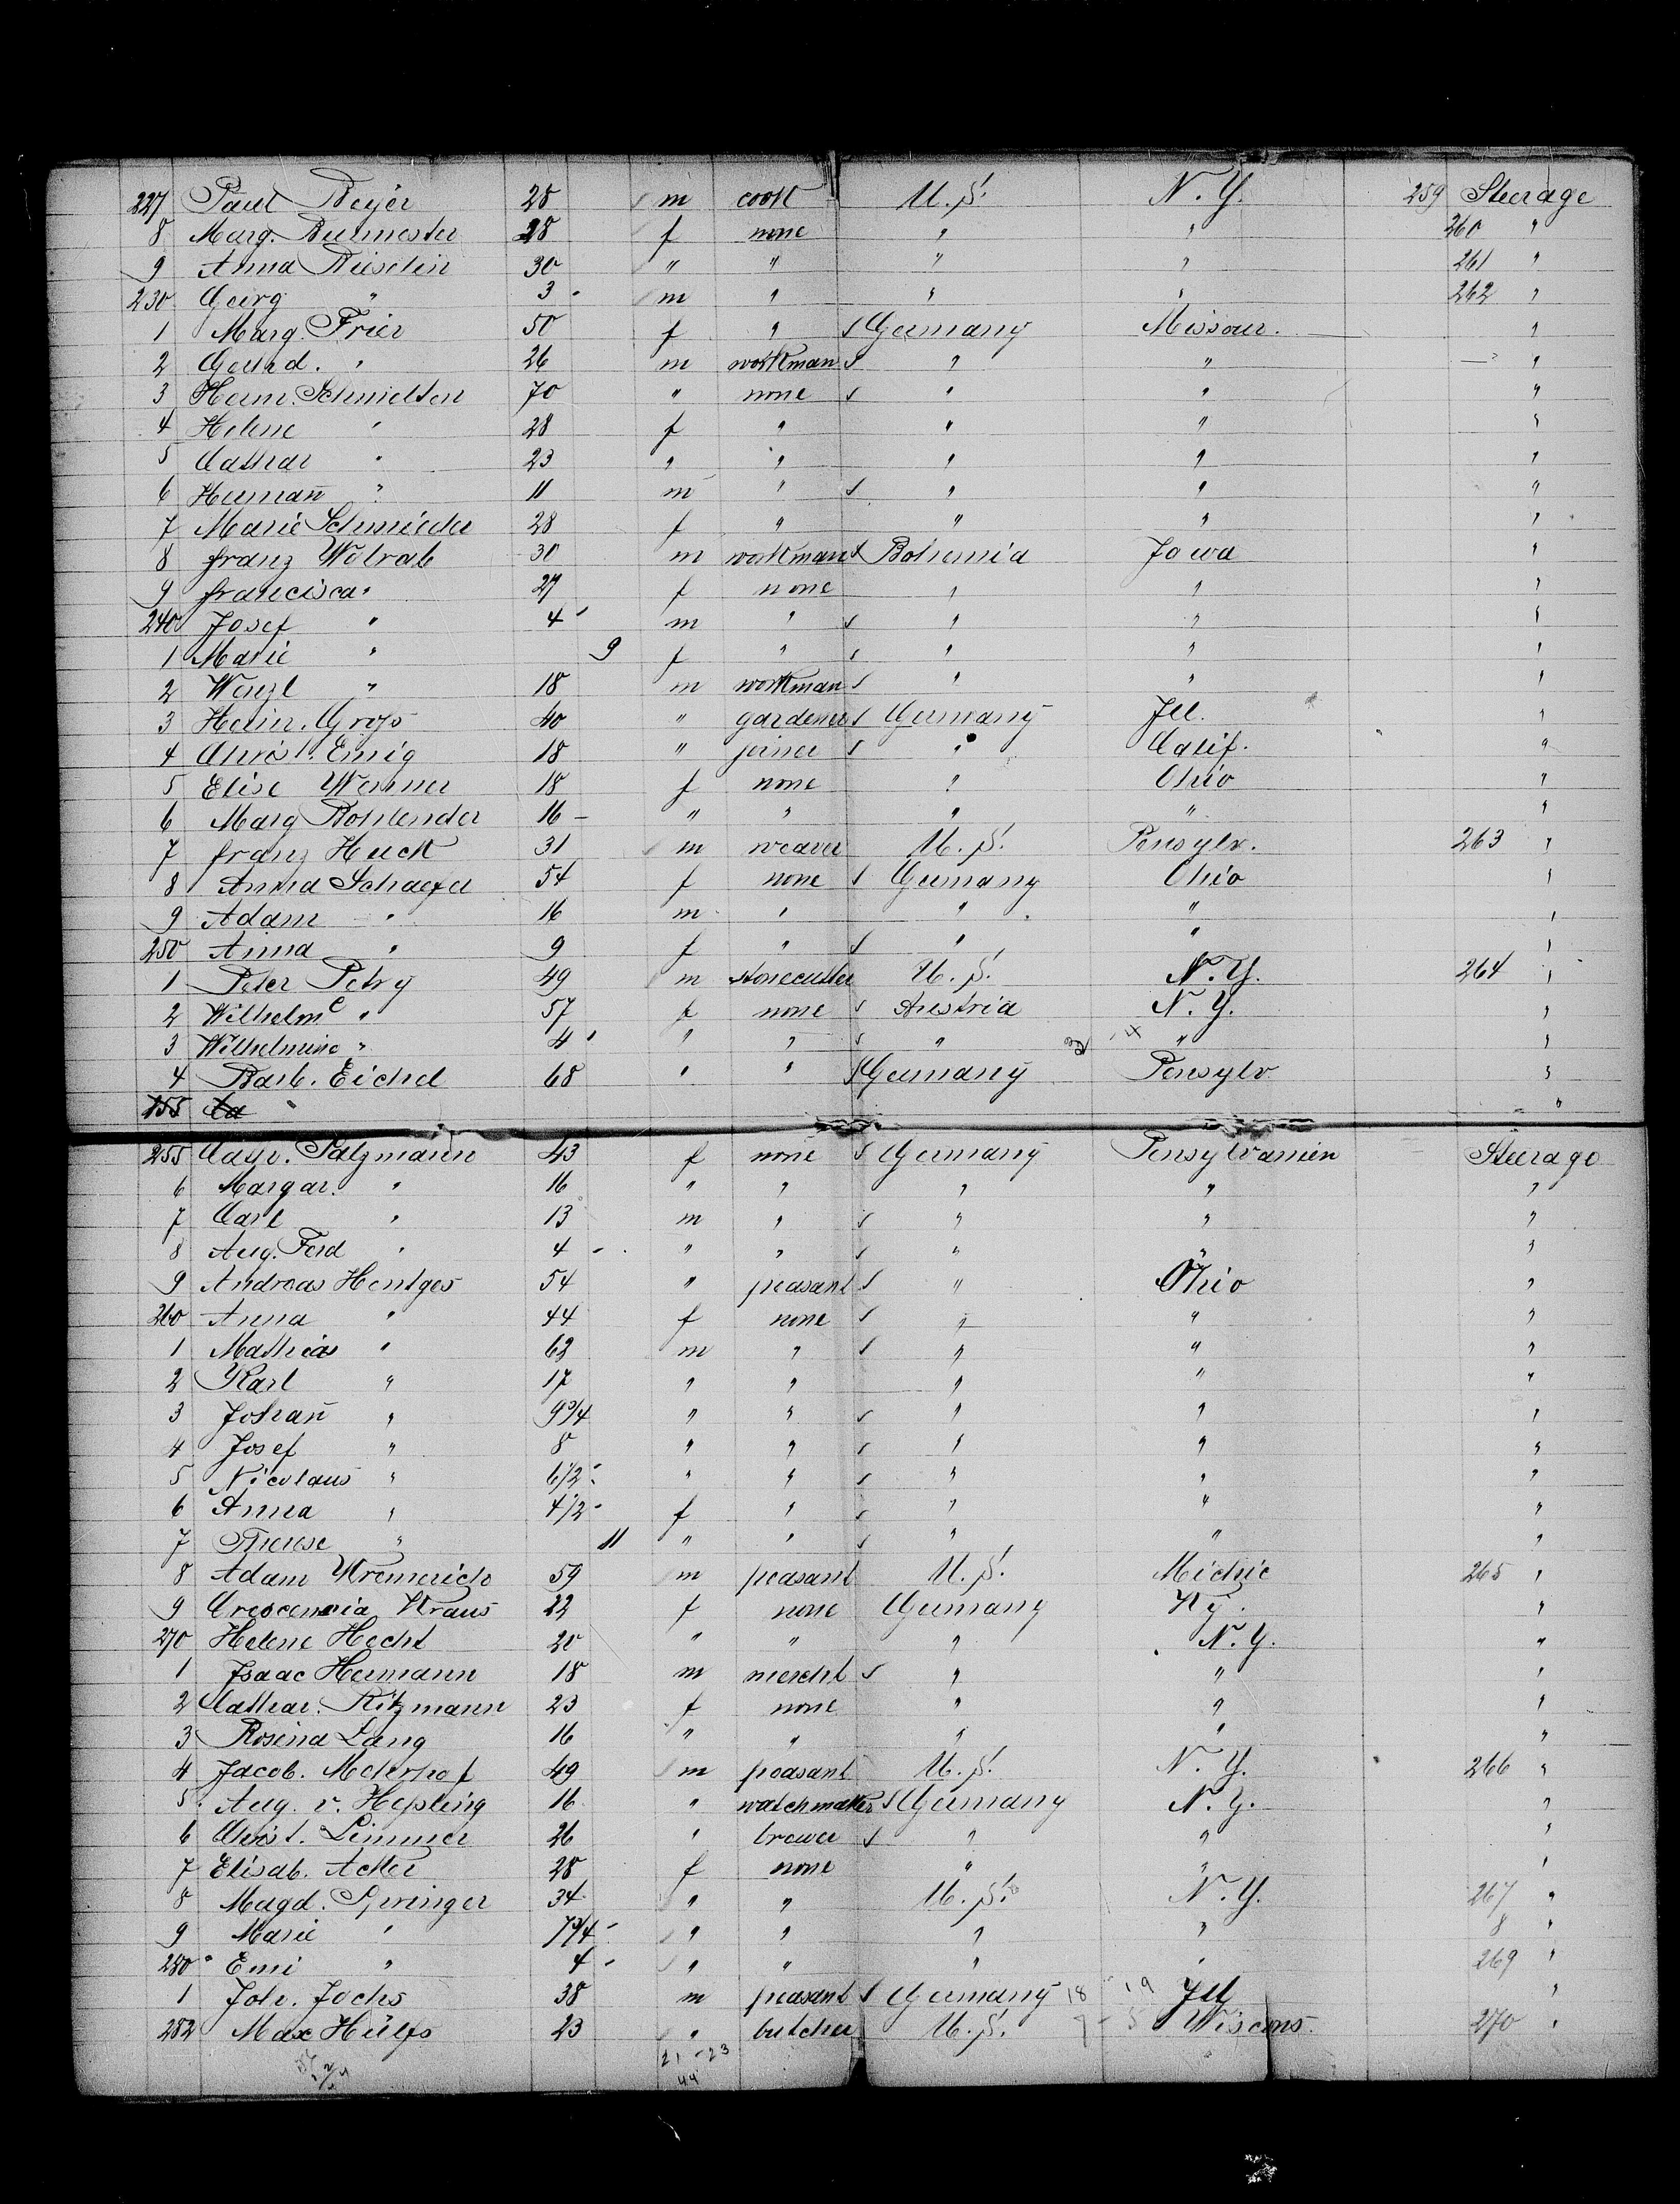 227 Paul Beyer 28 m cook U. S. N. Y. 259 Steerage
8 Marg. Burmester 28 f none " " 260 "
9 Anna Rieselin 30 " " " " 261 "
230 Georg " 3 m " " " 262 "
1 Marg. Frier 50 f " Germany Missour. "
2 Gerhd. " 26 m workman " " "
3 Herm. Schmielten 70 " none " " "
4 Helene " 28 f " " " "
5 Cathar " 23 " " " " "
6 Hermañ " 11 m " " " "
7 Marie Schmieder 28 f " " " "
8 franz Wolrab 30 m workman Bohemia Jowa "
9 francisca " 27 f none " " "
240 Josef " 4 m " " " "
1 Marie " 9 f " " " "
2 Wenzl " 18 m workman " " "
3 Heinr. Gross 40 " gardener Germany Jll. "
4 Christ. Emig 18 " joiner " Calif. "
5 Elise Werner 18 f none " Ohio "
6 Marg Rohlender 16 " " " " "
7 franz Huck 31 m weaver U. S. Pensylv. 263 "
8 Anna Schaefer 54 f none Germany Ohio "
9 Adam " 16 m " " " "
250 Anna " 9 f " " " "
1 Peter Petry 49 m stonecutter U. S. N. Y. 264 "
2 Wilhelm e " 57 f none Austria N. Y. "
3 Wilhelmine " 4 " " " " "
4 Barb. Eichel 68 " " Germany Pensylv "
255 "
255 Cathr. Salzmann 43 f none Germany Pensylvanien Steerage
6 Margar. " 16 " " " " "
7 Carl " 13 m " " " "
8 Aug. Ferd " 4 " " " " "
9 Andreas Hentges 54 " peasant " Ohio "
260 Anna " 44 f none " " "
1 Mathias " 62 m " " " "
2 Karl " 17 " " " " "
3 Johañ " 9 3/4 " " " " "
4 Josef " 8 " " " " "
5 Nicolaus " 6 1/2 " " " " "
6 Anna " 4 1/2 f " " " "
7 Therese " 11 " " " " "
8 Adam Kremerich 59 m peasant U. S. Michic 265 "
9 Crescennia Kraus 22 f none Germany Ky. "
270 Helene Hecht 20 " " " N. Y. "
1 Jsaac Hermann 18 m mercht " " "
2 Cathar. Ritzmann 23 f none " " "
3 Rosina Lang 16 " " " " "
4 Jacob. Meterhof 49 m peasant U. S. N. Y. 266 "
5 Aug. v. Hessling 16 " watchmaker Germany N. Y. "
6 Christ. Limmer 26 " brewer " " "
7 Elisab. Acker 28 f none " " "
8 Magd. Springer 34 " " U. S. N. Y. 267 "
9 Marie " 7 3/4 " " " " 8 "
280 Emi " 4 " " " " 269 "
1 Joh. Jochs 38 m peasant Germany 18 19 Jll "
282 Max Hülfs 23 " butcher U. S. 7 - 5 Wiscons. 270 "
21 - 23
44